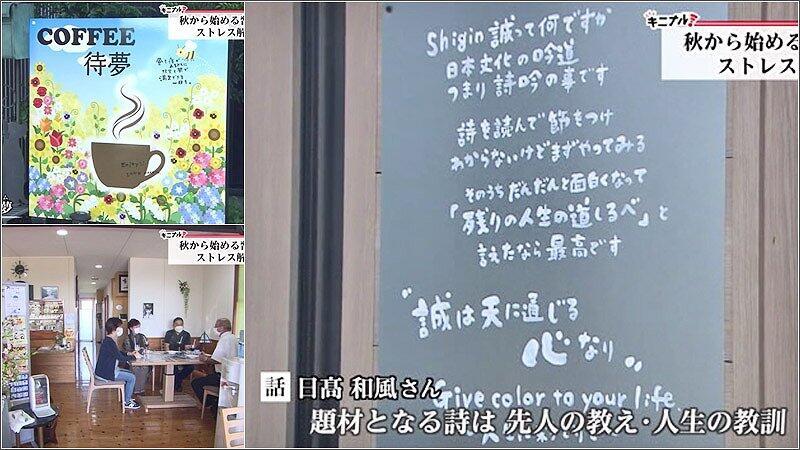 COFFEE
待夢
キニナル
秋から始める習
ストレス解
キニナル
秋から始める
ストレス
Shigin 誠って何ですか
日本文化の吟道
つまり 詩吟の事です
詩を読んで節をつけ
わからないけどまずやってみる
そのうち だんだんと面白くなって
「残りの人生の道しるべ」と
言えたなら 最高です
〝誠は天に通じる
心なり〟
Give color to your life
話 日髙 和風さん
題材となる詩は 先人の教え・人生の教訓
秋から始める習
ストレス解